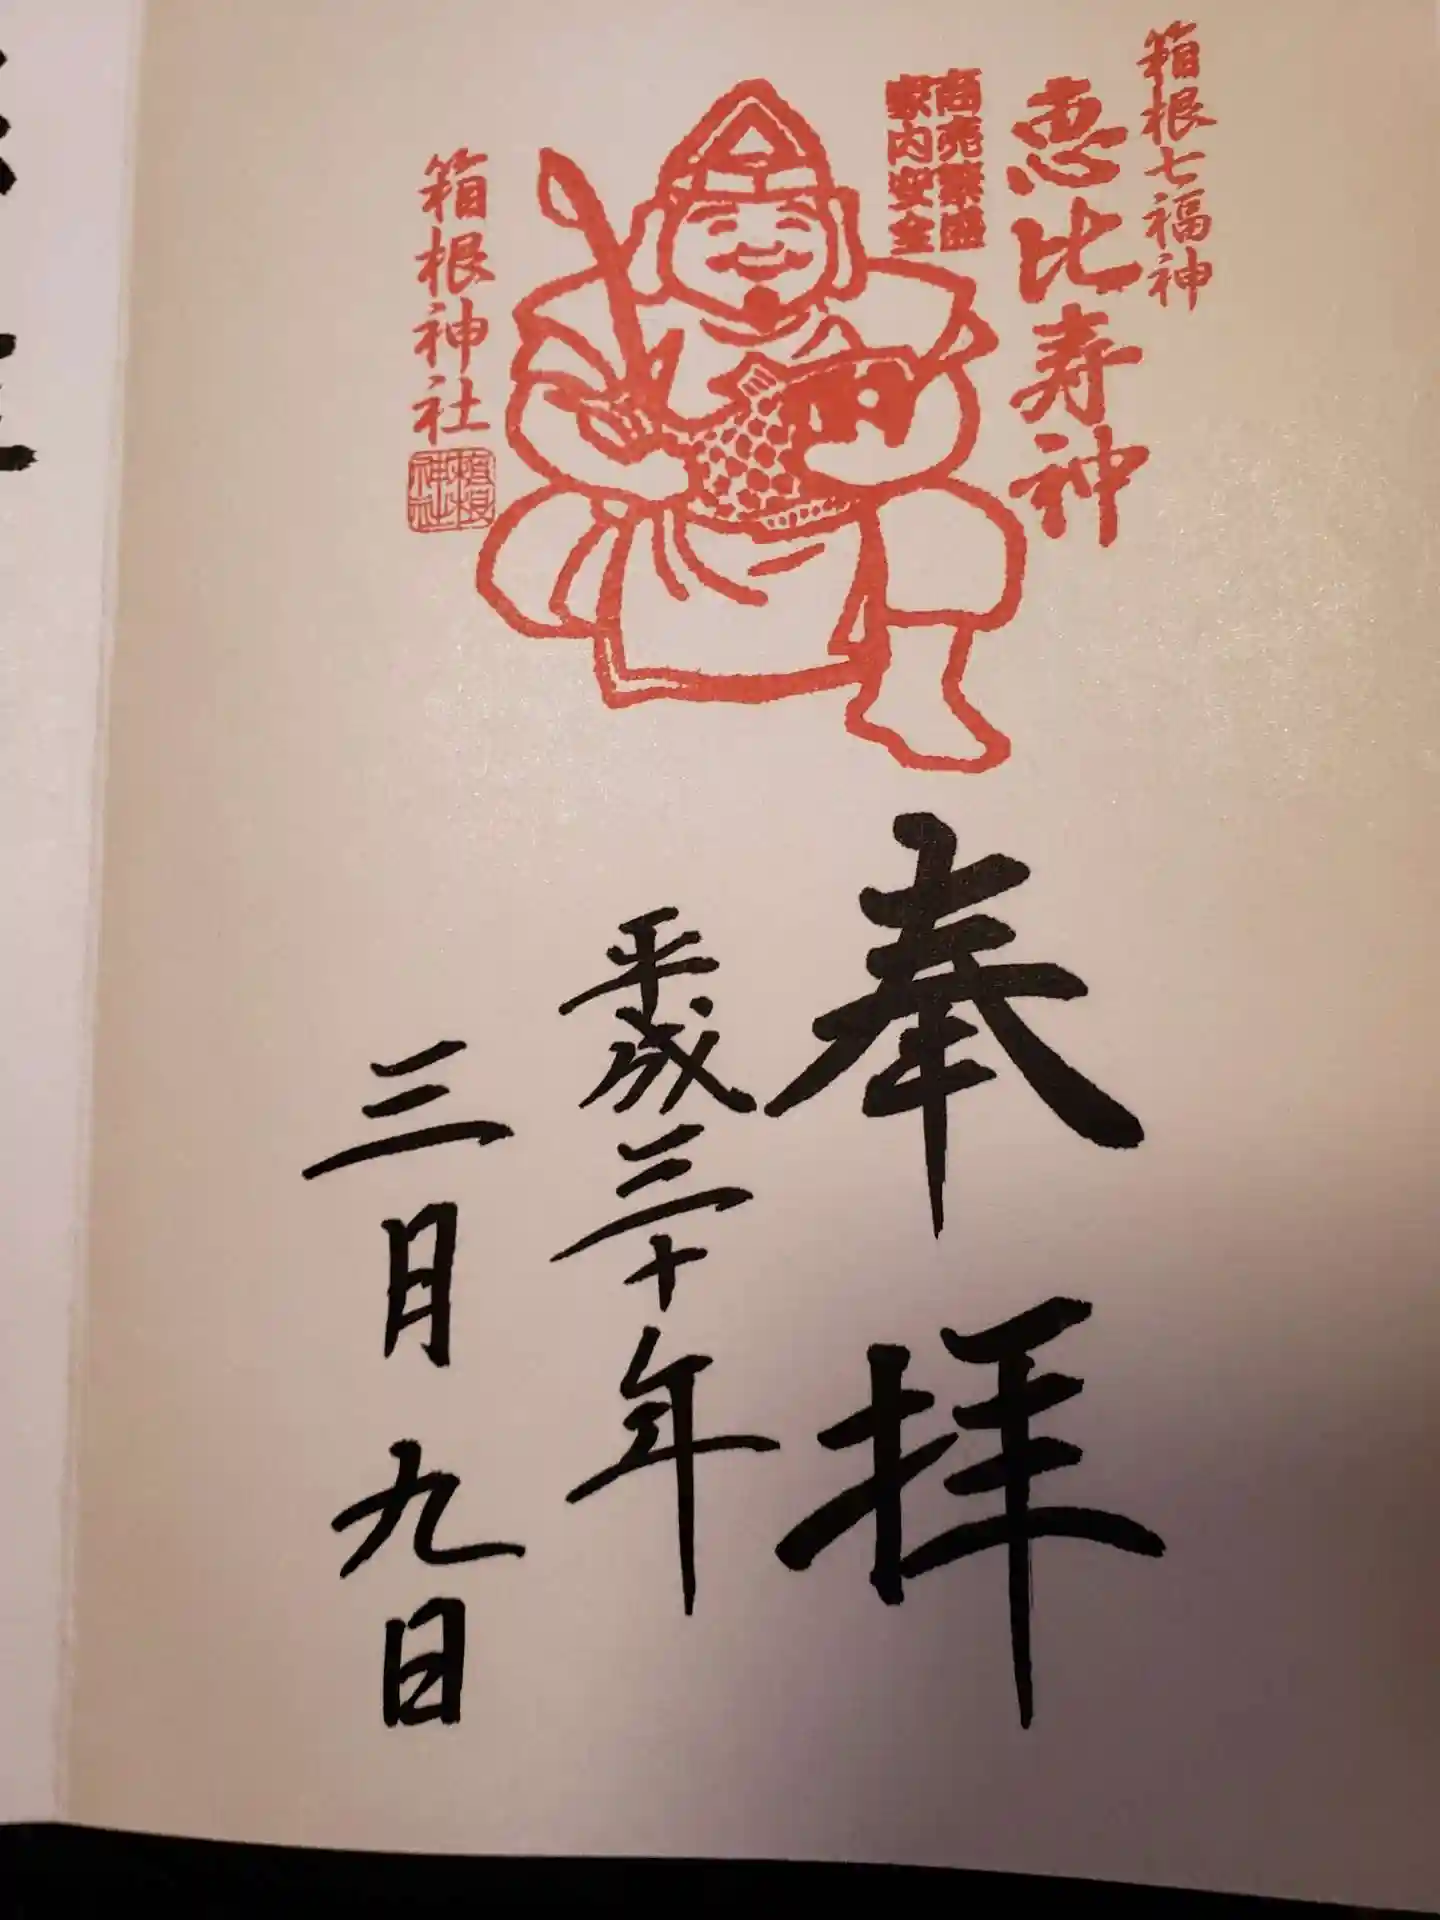 箱根七福神
恵比寿神
商売繁盛
家内安全
箱根神社
奉拝
平成三十年
三月九日